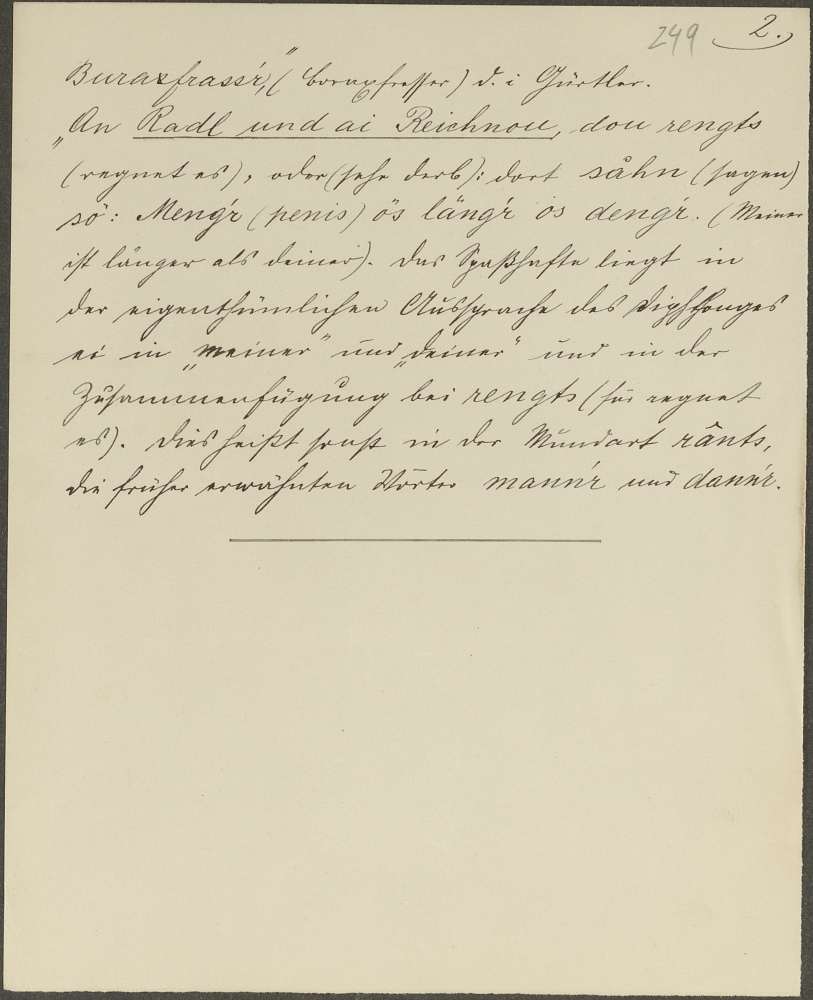 249 2.
Buraxfrass'r," (Boraxfresser) d. i Gürtler.
„An Radl und ai Reichnou, dou rengts
(regnet es), oder (sehr derb): dort såhn (sagen)
sö: Meng'r (penis) ös läng'r ös deng'r. (Meiner
ist länger als deiner). Das Spaßhafte liegt in
der eigenthümlichen Aussprache des Diphthonges
ei in „meiner" und „deiner" und in der
Zusammenfügung bei rengts (für regnet
es). Dies heißt sonst in der Mundart rânts,
die früher erwähnten Wörter mann'r und dann'r.